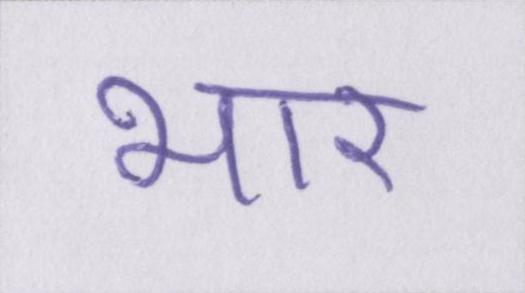 भार